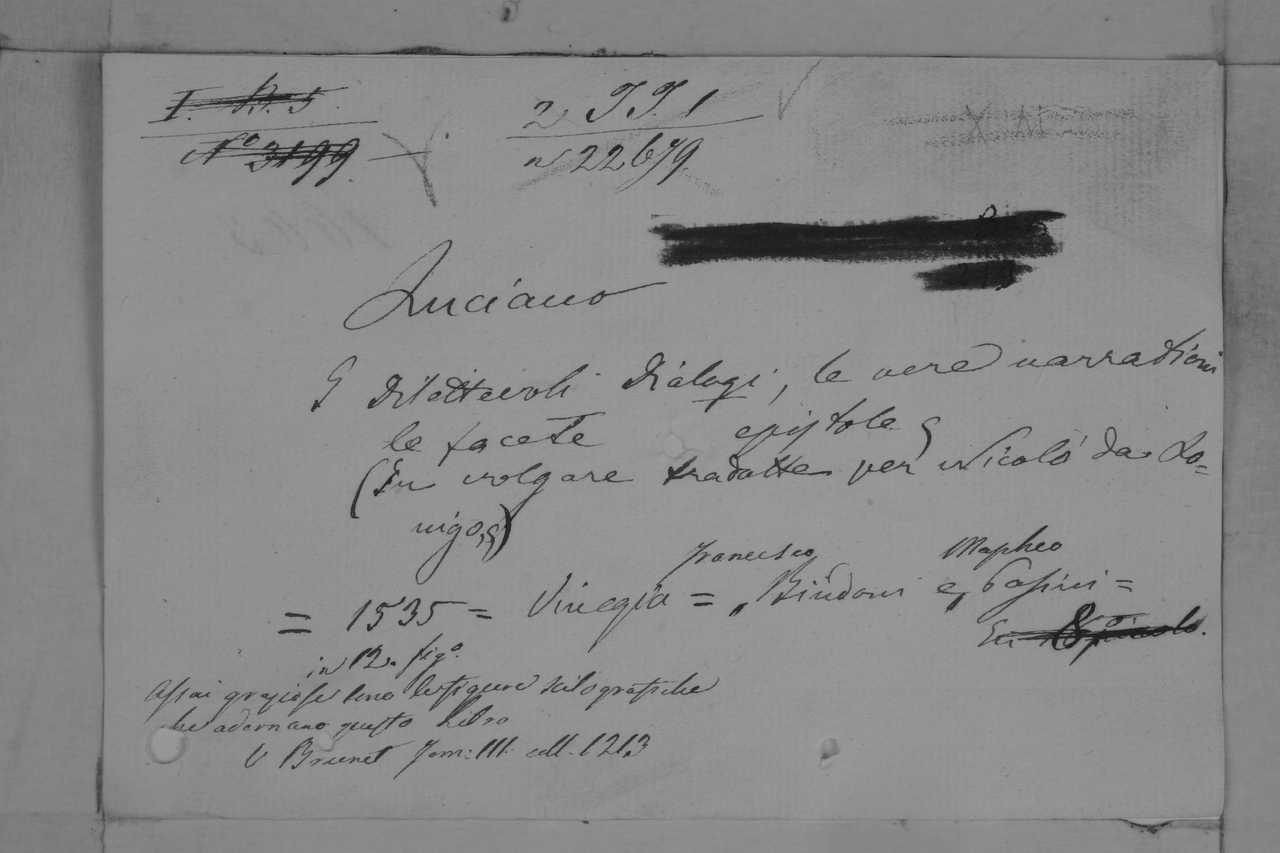 I. N. 5. 2 T T. 1
N° 3199 n 22679
Luciano
I Dilettevoli Dialogi, le vere narrationi
le facete epistole
(In volgare tradotte per Nicolò da Lo=
nigo,)
Francesco Mapheo
= 1535 = Vinegia = Bindoni e Pasini =
In 8° piccolo.
in 12. fig°.
Assai graziose sono le figure silografiche
che adornano questo Libro
V Brunet Tom: III. coll. 1213